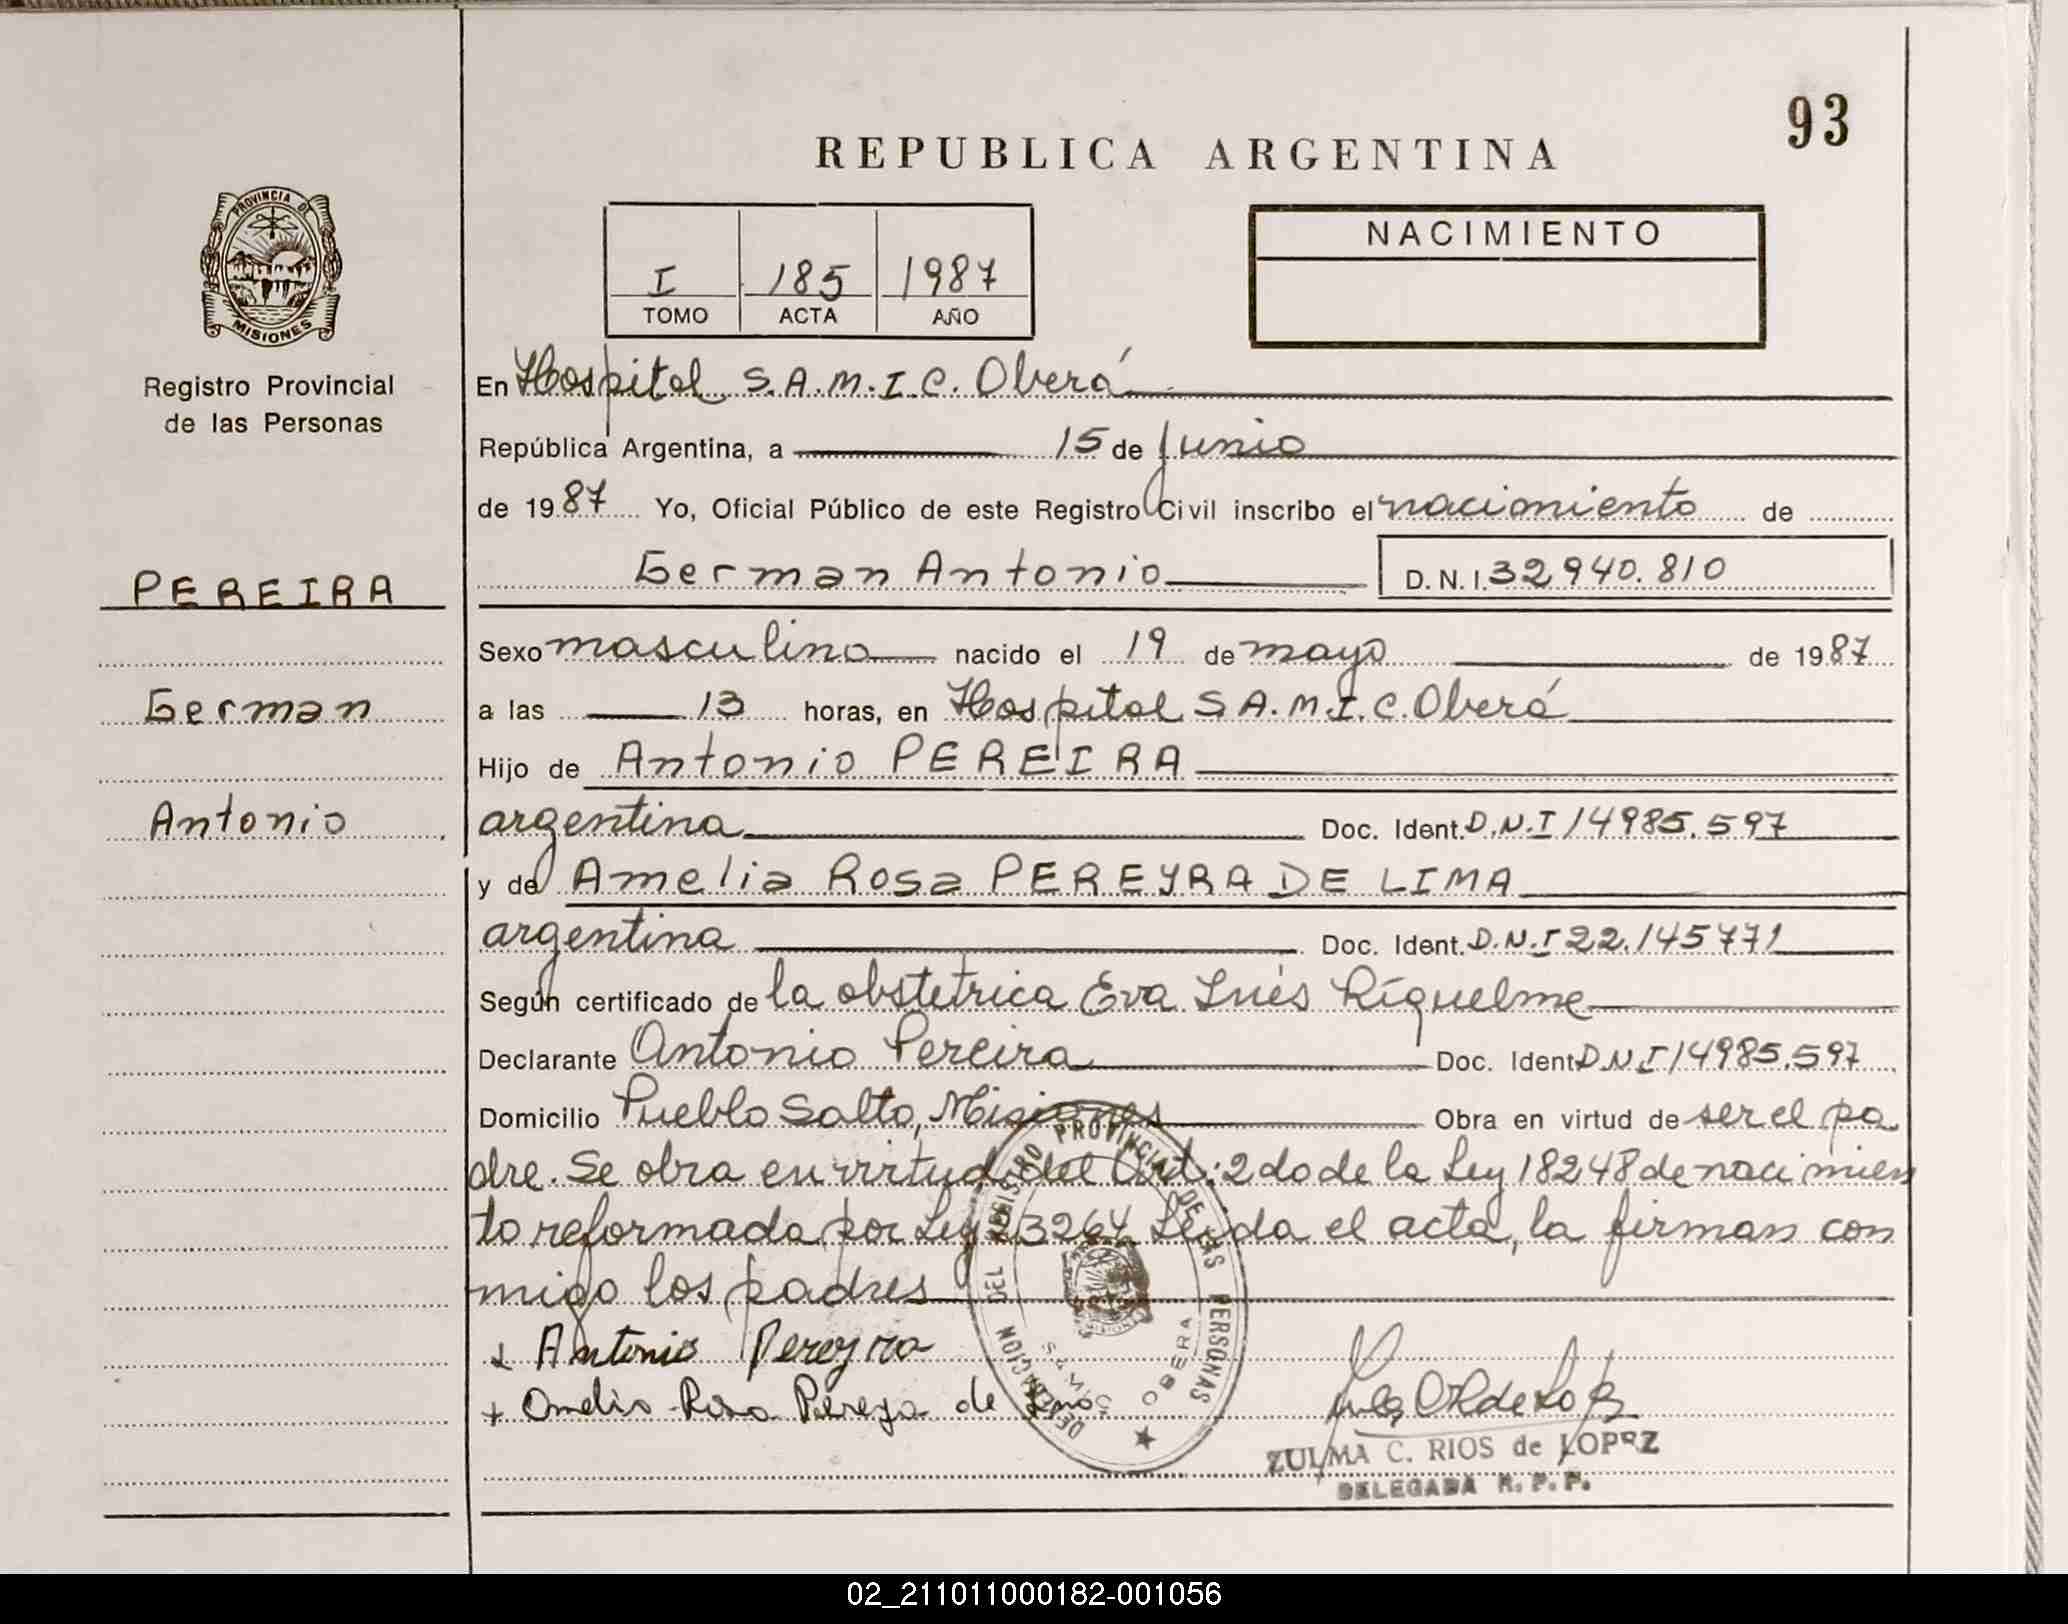 93
REPUBLICA ARGENTINA
PROVINCIA DE
MISIONES
Registro Provincial
de las Personas
I 185 1987
TOMO ACTA AÑO
NACIMIENTO
En Hospital S.A.M.I.C. Oberá
República Argentina, a 15 de Junio
de 1987 Yo, Oficial Público de este Registro Civil inscribo el nacimiento de
German Antonio D.N.I. 32940.810
PEREIRA
German
Antonio
Sexo masculino nacido el 19 de mayo de 1987
a las 13 horas, en Hospital S A.M.I.C. Oberá
Hijo de Antonio PEREIRA
argentina Doc. Ident. D.N.I 14985.597
y de Amelia Rosa PEREYRA DE LIMA
argentina Doc. Ident. D.N.I 22.145771
Según certificado de la obstetrica Eva Inés Ríquelme
Declarante Antonio Pereira Doc. Ident D.N.I 14985.597
Domicilio Pueblo Salto, Misiones Obra en virtud de ser el pa
dre. Se obra en virtud del Art: 2 do de la Ley 18248 de nacimien
to reformada por Ley 23264 Leida el acta, la firman con
migo los padres
+ Antonio Pereyra
+ Amelia Rosa Pereya de Lima
DELEGACION DEL REGISTRO PROVINCIAL DE LAS PERSONAS
OBERA
ZULMA C. RIOS de LOPEZ
DELEGADA R. P. P.
02_211011000182-001056